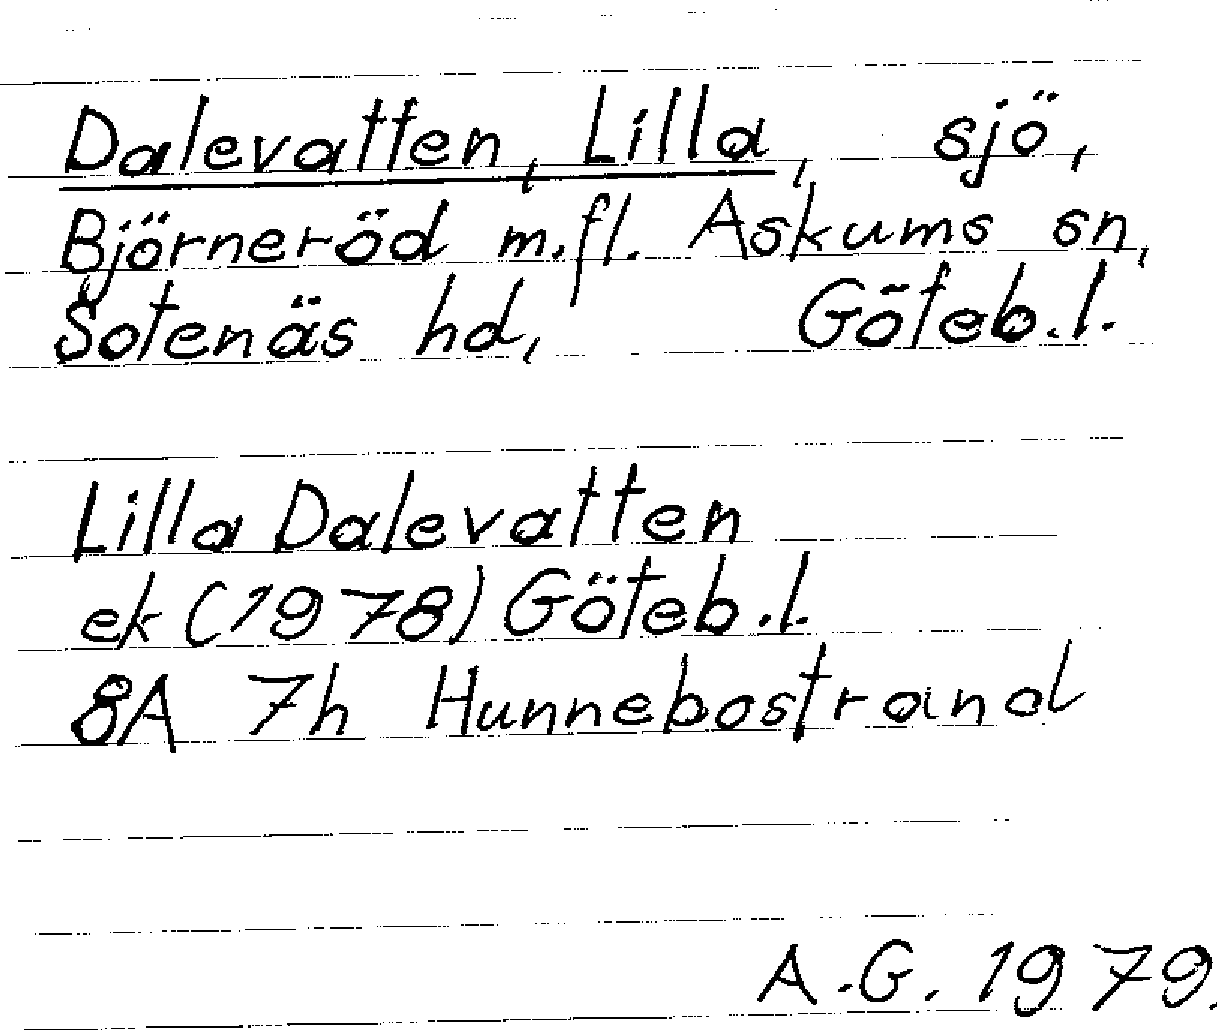 Dalevatten, Lilla, sjö,
Björneröd m.fl. Askums sn,
Sotenäs hd, Göteb.l.
Lilla Dalevatten
ek (1978) Göteb.l.
8A 7h Hunnebostrand
A.G. 1979.